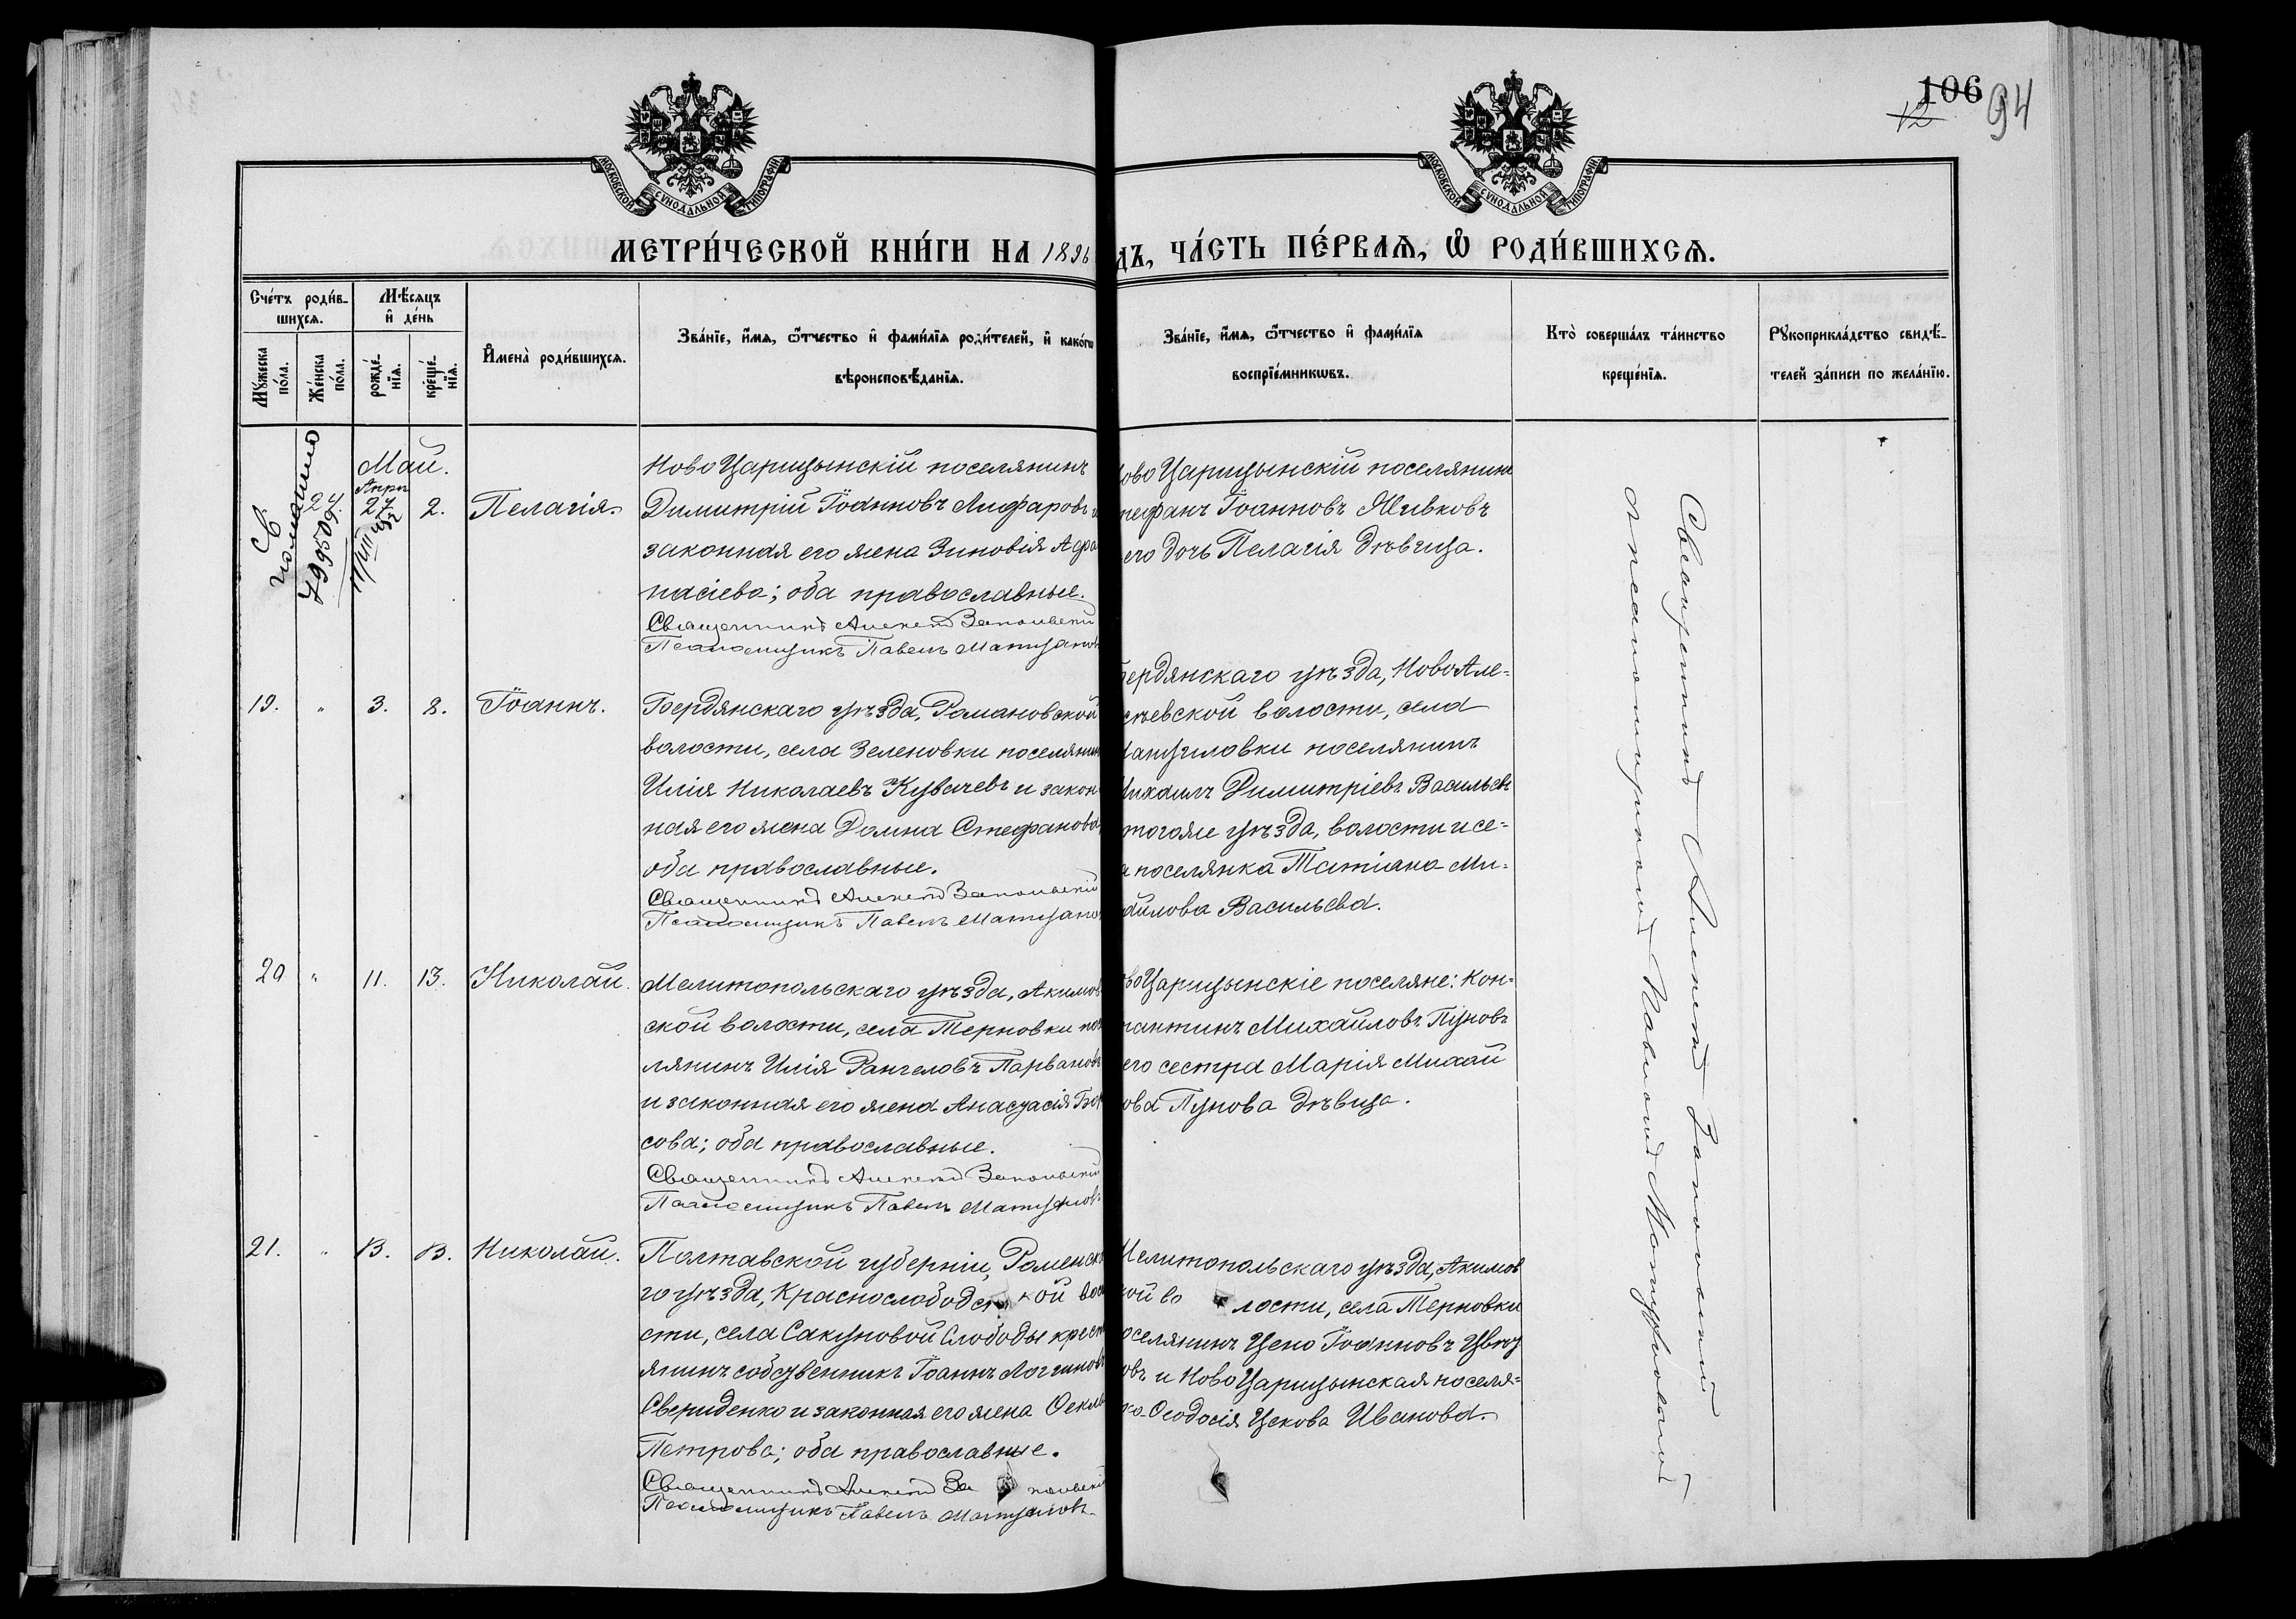 106
12
94
МОСКОВСКОЙ СѴНОДАЛЬНОЙ ТИПОГРАФІИ
МОСКОВСКОЙ СѴНОДАЛЬНОЙ ТИПОГРАФІИ
МЕТРИ́ЧЕСКОЙ КНИ́ГИ НА 1896
ДЪ, ЧА́СТЬ ПЕ́РВАѦ, Ѽ РОДИ́ВШИХСѦ.
Сче́тъ роди́в-
шихсѧ.
Мѣ́сѧцъ
и҆ де́нь
Мꙋ́жеска
по́ла.
Же́нска
по́ла.
рожде́-
нїѧ.
креще́-
нїѧ.
И҆мена̀ роди́вшихсѧ.
Зва́нїе, и҆́мѧ, ѻ҆́тчество и҆ фами́лїѧ роди́телей, и҆ како́гѡ
вѣроисповѣ́данїѧ.
Зва́нїе, и҆́мѧ, ѻ҆́тчество и҆ фами́лїѧ
воспрїе́мникѡвъ.
Кто̀ соверша́лъ та́инство
креще́нїѧ.
Рꙋкоприкла́дство свидѣ́-
телей за́писи по жела́нїю.
Май.
Апрѣ
24. 27 2. Пелагія.
НовоЦарицынскій поселянинъ
Димитрій Іоанновъ Лифаровъ и
законная его жена Зиновія Афа
насіева; оба православные.
Священникъ Алексѣй Запольскій
Псаломщикъ Павелъ Матузанов
ово Царицынскій поселянинъ
тефанъ Іоанновъ Живковъ
его дочь Пелагія дѣвица.
19. " 3. 8. Іоаннъ.
Бердянскаго уѣзда, Романовской
волости, села Зеленовки поселянин
Илія Николаевъ Кувачевъ и закон
ная его жена Домна Стефанова
оба православные.
Священникъ Алексѣй Запольскій
Псаломщикъ Павелъ Матузанов
ердянскаго уѣзда, НовоАле-
сѣевской волости, села
ануиловки поселянинъ
ихаилъ Димитріевъ Васильевъ
тогоже уѣзда, волости и се-
а поселянка Татіана Ми-
айлова Васильева.
20 " 11. 13. Николай.
Мелитопольскаго уѣзда, Акимов
ской волости, села Терновки пос
лянинъ Илія Рангеловъ Парвановъ
и законная его жена Анастасія Бор
сова; оба православные.
Священникъ Алексѣй Запольскій
Псаломщикъ Павелъ Матузановъ
воЦарицынскіе поселяне: Кон-
тантинъ Михайловъ Пуновъ
его сестра Марія Михай
ова Пунова дѣвица.
21. " 13. 13. Николай.
Полтавской губерніи, Роменска
го уѣзда, Краснослободской вол
сти, села Сакуновой Слободы крест
янинъ собственникъ Іоаннъ Логгиновъ
Свериденко и законная его жена Ѳекла
Петрова; оба православные.
Священникъ Алексѣй Запольскій
Псаломщикъ Павелъ Матузановъ
Мелитопольскаго уѣзда, Акимов
кой волости, села Терновки
оселянинъ Цено Іоанновъ Цвѣт
овъ и НовоЦарицынская поселя-
ка Ѳеодосія Цекова Иванова.
Священникъ Алексѣй Запольскій
съ псаломщикомъ Павломъ